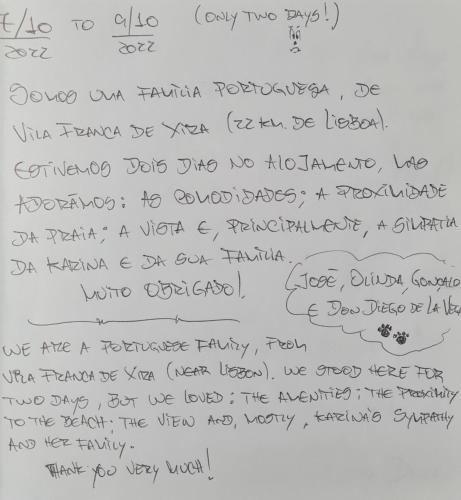 7/10 TO 9/10 (ONLY TWO DAYS!)
2022 2022
SOMOS UMA FAMÍLIA PORTUGUESA, DE
VILA FRANCA DE XIRA (22 KM. DE LISBOA).
ESTIVEMOS DOIS DIAS NO ALOJAMENTO, MAS
ADORÁMOS: AS COMODIDADES; A PROXIMIDADE
DA PRAIA; A VISTA E, PRINCIPALMENTE, A SIMPATIA
DA KARINA E DA SUA FAMÍLIA.
MUITO OBRIGADO!
(JOSÉ, OLINDA, GONÇALO
E DON DIEGO DE LA VEGA
WE ARE A PORTUGUESE FAMILY, FROM
VILA FRANCA DE XIRA (NEAR LISBON). WE STOOD HERE FOR
TWO DAYS, BUT WE LOVED: THE AMENITIES; THE PROXIMITY
TO THE BEACH; THE VIEW AND, MOSTLY, KARINA'S SYMPATHY
AND HER FAMILY.
THANK YOU VERY MUCH!